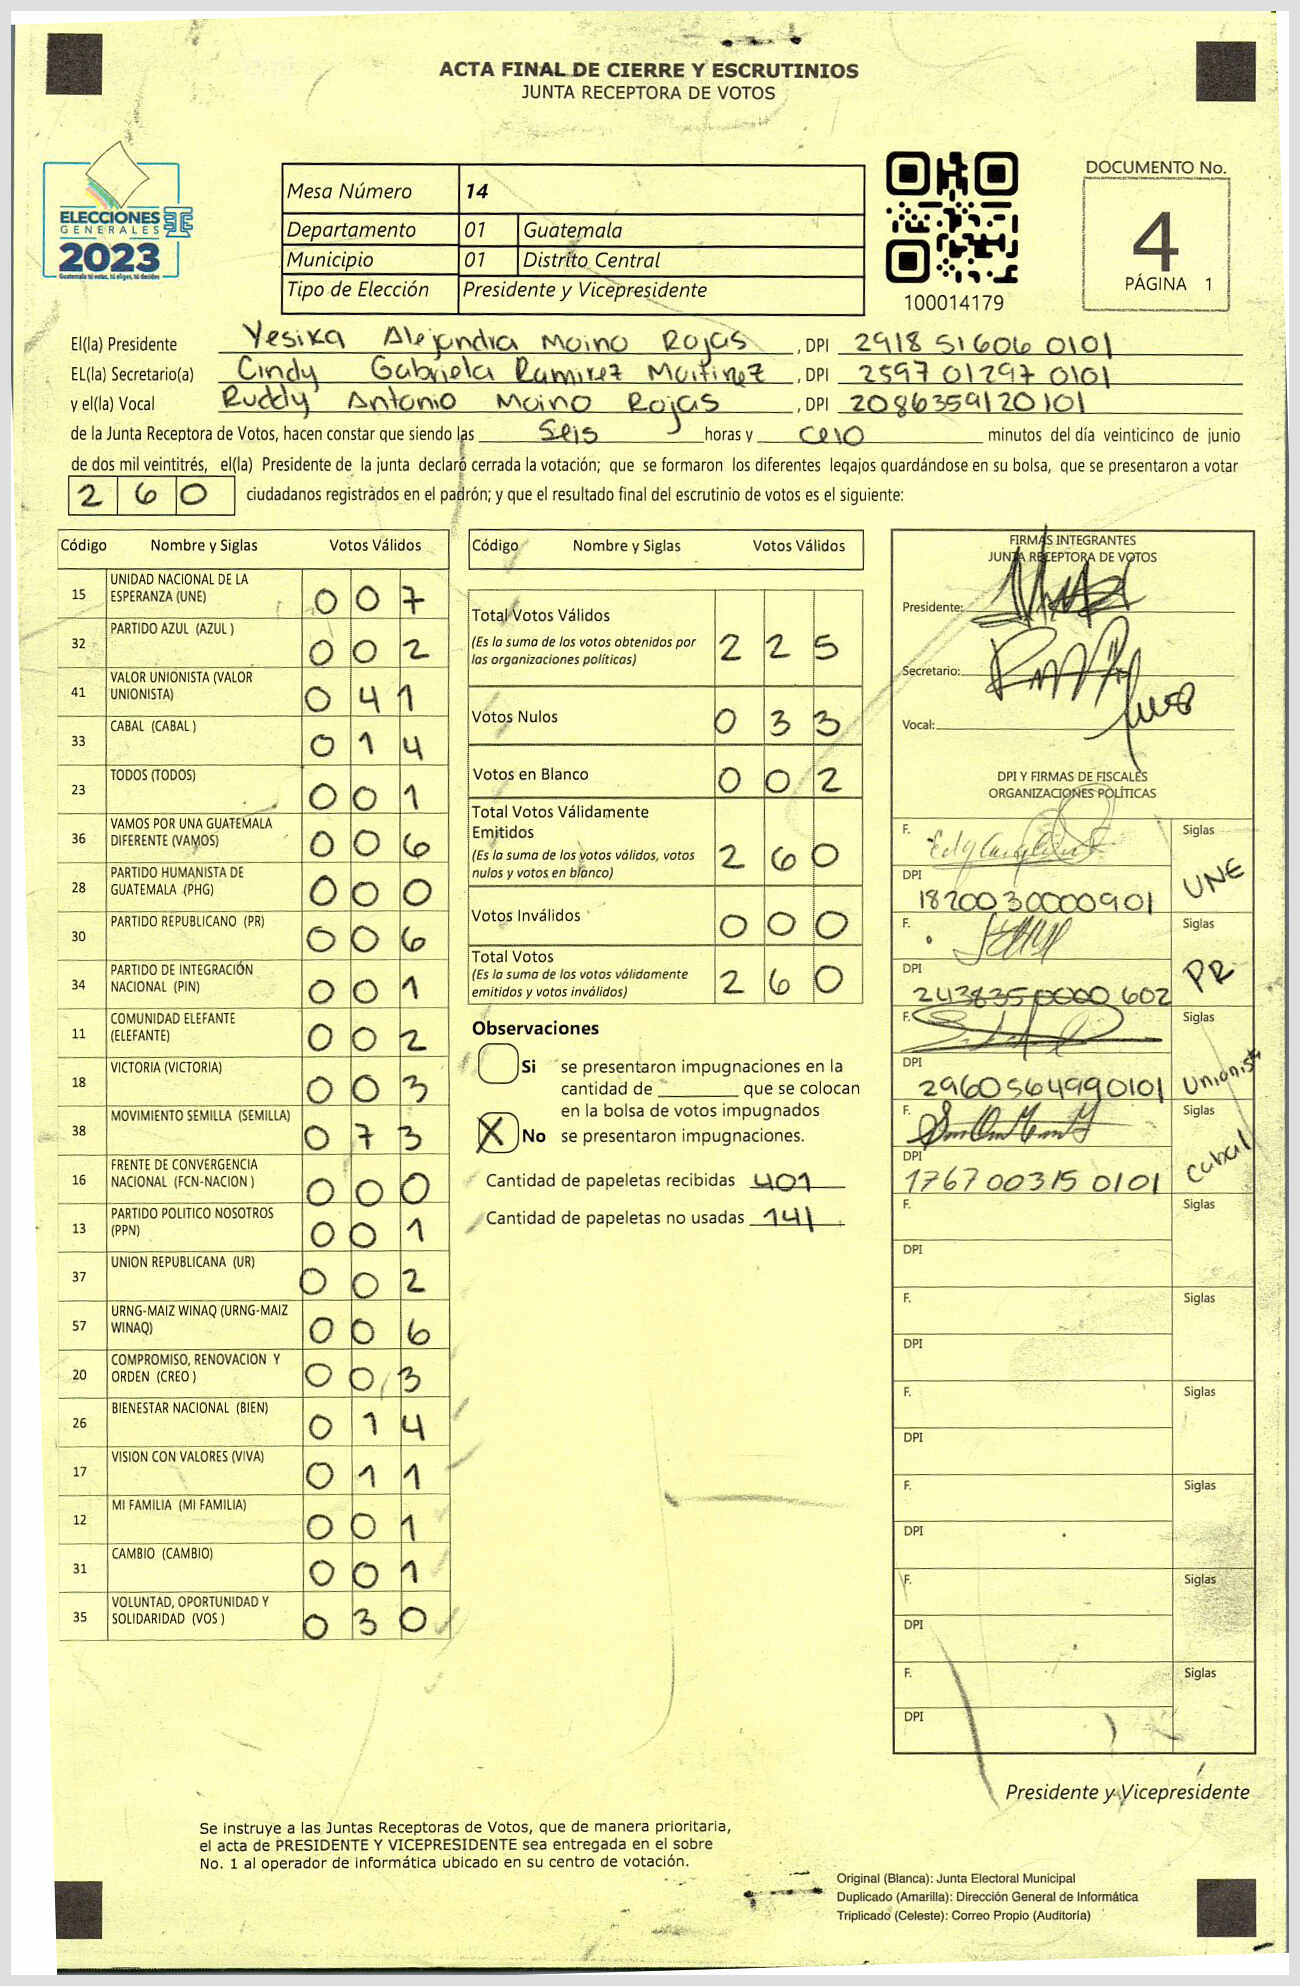 ACTA FINAL DE CIERRE Y ESCRUTINIOS
JUNTA RECEPTORA DE VOTOS
ELECCIONES
GENERALES
2023
Guatemala tú votas, tú eliges, tú decides
Mesa Número 14
Departamento 01 Guatemala
Municipio 01 Distrito Central
Tipo de Elección Presidente y Vicepresidente
100014179
DOCUMENTO No.
4
PÁGINA 1
El(la) Presidente Yesika Alejandra Moino Rojas, DPI 2918 51606 0101
EL(la) Secretario(a) Cindy Gabriela Ramirez Maitinez, DPI 2597 01297 0101
y el(la) Vocal Ruddy Antonio Moino Rojas, DPI 2086359120101
de la Junta Receptora de Votos, hacen constar que siendo las Seis horas y cero minutos del día veinticinco de junio
de dos mil veintitrés, el(la) Presidente de la junta declaró cerrada la votación; que se formaron los diferentes legajos guardándose en su bolsa, que se presentaron a votar
2 6 0 ciudadanos registrados en el padrón; y que el resultado final del escrutinio de votos es el siguiente:
Código Nombre y Siglas Votos Válidos
15 UNIDAD NACIONAL DE LA ESPERANZA (UNE) 0 0 7
32 PARTIDO AZUL (AZUL ) 0 0 2
41 VALOR UNIONISTA (VALOR UNIONISTA) 0 4 1
33 CABAL (CABAL ) 0 1 4
23 TODOS (TODOS) 0 0 1
36 VAMOS POR UNA GUATEMALA DIFERENTE (VAMOS) 0 0 6
28 PARTIDO HUMANISTA DE GUATEMALA (PHG) 0 0 0
30 PARTIDO REPUBLICANO (PR) 0 0 6
34 PARTIDO DE INTEGRACIÓN NACIONAL (PIN) 0 0 1
11 COMUNIDAD ELEFANTE (ELEFANTE) 0 0 2
18 VICTORIA (VICTORIA) 0 0 3
38 MOVIMIENTO SEMILLA (SEMILLA) 0 7 3
16 FRENTE DE CONVERGENCIA NACIONAL (FCN-NACION ) 0 0 0
13 PARTIDO POLITICO NOSOTROS (PPN) 0 0 1
37 UNION REPUBLICANA (UR) 0 0 2
57 URNG-MAIZ WINAQ (URNG-MAIZ WINAQ) 0 0 6
20 COMPROMISO, RENOVACION Y ORDEN (CREO ) 0 0 3
26 BIENESTAR NACIONAL (BIEN) 0 1 4
17 VISION CON VALORES (VIVA) 0 1 1
12 MI FAMILIA (MI FAMILIA) 0 0 1
31 CAMBIO (CAMBIO) 0 0 1
35 VOLUNTAD, OPORTUNIDAD Y SOLIDARIDAD (VOS ) 0 3 0
Código Nombre y Siglas Votos Válidos
Total Votos Válidos 2 2 5
(Es la suma de los votos obtenidos por
las organizaciones políticas)
Votos Nulos 0 3 3
Votos en Blanco 0 0 2
Total Votos Válidamente
Emitidos 2 6 0
(Es la suma de los votos válidos, votos
nulos y votos en blanco)
Votos Inválidos 0 0 0
Total Votos 2 6 0
(Es la suma de los votos válidamente
emitidos y votos inválidos)
Observaciones
Si se presentaron impugnaciones en la
cantidad de ________ que se colocan
en la bolsa de votos impugnados
X No se presentaron impugnaciones.
Cantidad de papeletas recibidas 401
Cantidad de papeletas no usadas 141
FIRMAS INTEGRANTES
JUNTA RECEPTORA DE VOTOS
Presidente:
Secretario:
Vocal:
DPI Y FIRMAS DE FISCALES
ORGANIZACIONES POLÍTICAS
F. Siglas UNE
DPI 1820030000901
F. Siglas PR
DPI 2438350000 602
F. Siglas Unionista
DPI 2960564990101
F. Siglas Cabal
DPI 1767 00315 0101
F. Siglas
DPI
F. Siglas
DPI
F. Siglas
DPI
F. Siglas
DPI
F. Siglas
DPI
F. Siglas
DPI
Presidente y Vicepresidente
Se instruye a las Juntas Receptoras de Votos, que de manera prioritaria,
el acta de PRESIDENTE Y VICEPRESIDENTE sea entregada en el sobre
No. 1 al operador de informática ubicado en su centro de votación.
Original (Blanca): Junta Electoral Municipal
Duplicado (Amarilla): Dirección General de Informática
Triplicado (Celeste): Correo Propio (Auditoría)